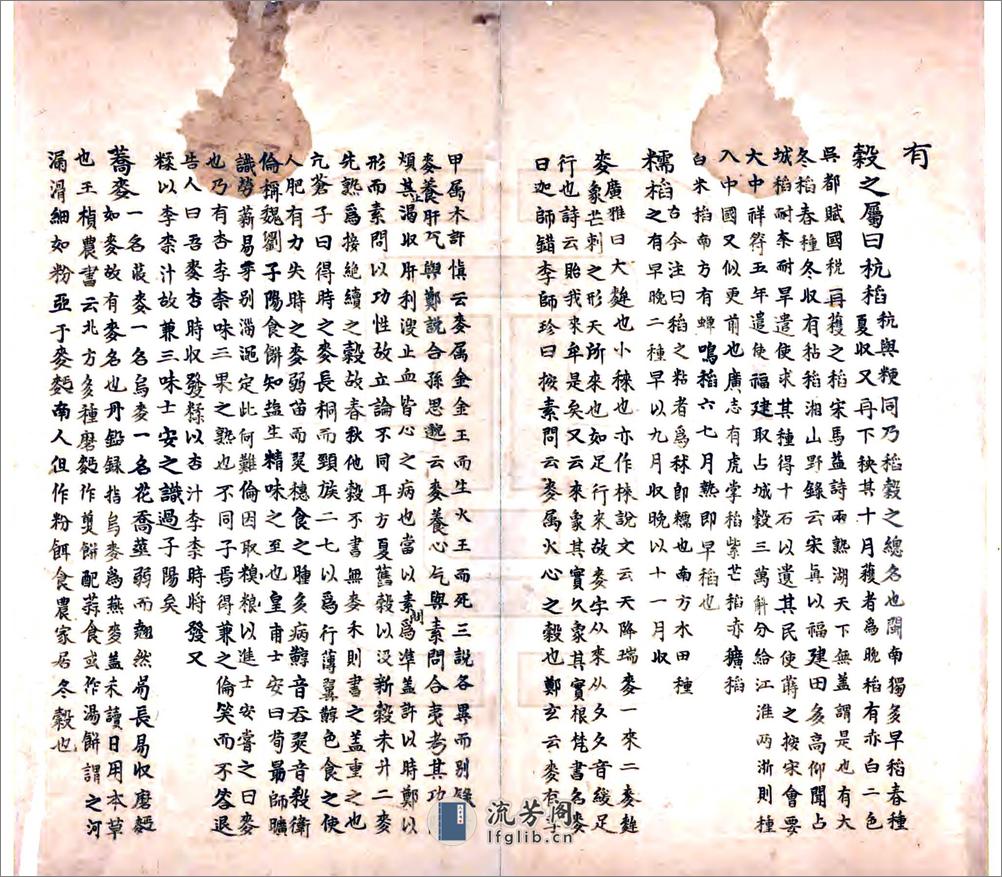 有
穀之屬曰秔稻秔與粳同乃稻穀之總名也閩南獨多早稻春種
夏收又再下秧其十月穫者爲晚稻有赤白二色
吳都賦國税再穫之稻宋馬益詩兩熟湖天下無蓋謂是也有大
冬稻春種冬收有粘稻湘山野錄云宋真以福建田多高仰聞占
城稻耐旱遣使求其種得十石以遺其民使蒔之按宋會要
大中祥符五年遣使福建取占城穀三萬斛分給江淮兩浙則種
入中國又似更前也廣志有虎掌稻紫芒稻赤穬稻
白米稻南方有蟬鳴稻六七月熟即早稻也
糯稻之有早晚二種早以九月收晚以十一月收
古今注曰稻之粘者爲秫即糯也南方水田種
麥廣雅曰大麰也小䅘也亦作㭐說文云天降瑞麥一來二麥麰
象芒刺之形天所來也如足行來故麥字从來从夂夂音綏足
行也詩云貽我來牟是矣又云來象其實夂象其實根梵書名麥
曰迦師錯李師珍曰按素問云麥属火心之穀也鄭玄云麥有孚
甲属木許慎云麥属金金王而生火王而死三說各異而别錄
麥養肝气與鄭說合孫思邈云麥養心气與素問合夷考其功
煩其渴收肝利溲止血皆心之病也當以素問爲準蓋許以時鄭以
形而素問以功性故立論不同耳方夏舊穀以没新穀未升二麥
先熟爲接絶續之穀故春秋他穀不書無麥禾則書之蓋重之也
亢蒼子曰得時之麥長稠而頸族二七以爲行薄翼䵎色食之使
人肥有力失時之麥弱苗而翜穗食之腫多病䵎音吞翜音殺衛
倫稱魏劉子陽食餅知塩生精味之至也皇甫士安曰荀勗師曠
識勞薪易牙别淄澠定此何難倫因取糗粮以進士安嘗之曰麥
也乃有杏李柰味三果之熟也不同子焉得兼之倫笑而不答退
告人曰吾麥杏時收發糅以杏汁李柰時將發又
糅以李柰汁故兼三味士安之識過子陽矣
蕎麥一名荍麥一名烏麥一名花蕎莖弱而翹然易長易收磨麪
如麥故有麥名也丹鉛録指烏麥爲燕麥蓋未讀日用本草
也王楨農書云北方多種磨麪作煎餅配蒜食或作湯餅謂之河
漏滑細如粉亞于麥麪南人但作粉餌食農家居冬穀也
流芳閣
lfglib.cn